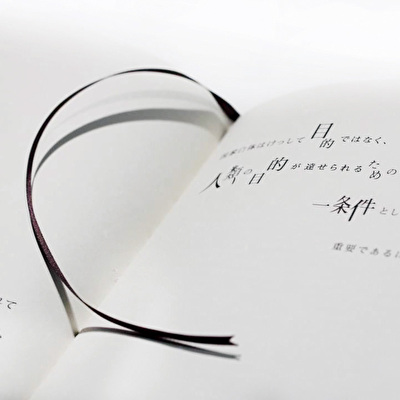 国家自体はけっして目的ではなく、
人類の目的が達せられるための
一条件とし
重要であるに